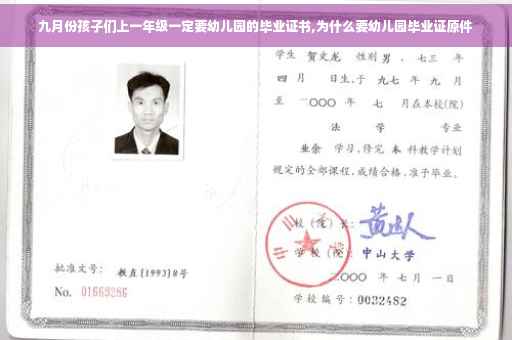 九月份孩子们上一年级一定要幼儿园的毕业证书,为什么要幼儿园毕业证原件
学生 贺文龙 性别 男 、七三 年
四 月 日生,于 九七 年 九 月
至 二〇〇〇 年 七 月在本校(院)
法 学 专业
业余 学习,修完 本 科教学计划
规定的全部课程,成绩合格,准予毕业。
校(院)长:
中山大学
学校(院): 中山大学
批准文号: 教直(1993)8号
二〇〇〇 年 七 月 一 日
No. 01669286
学校编号:0032482